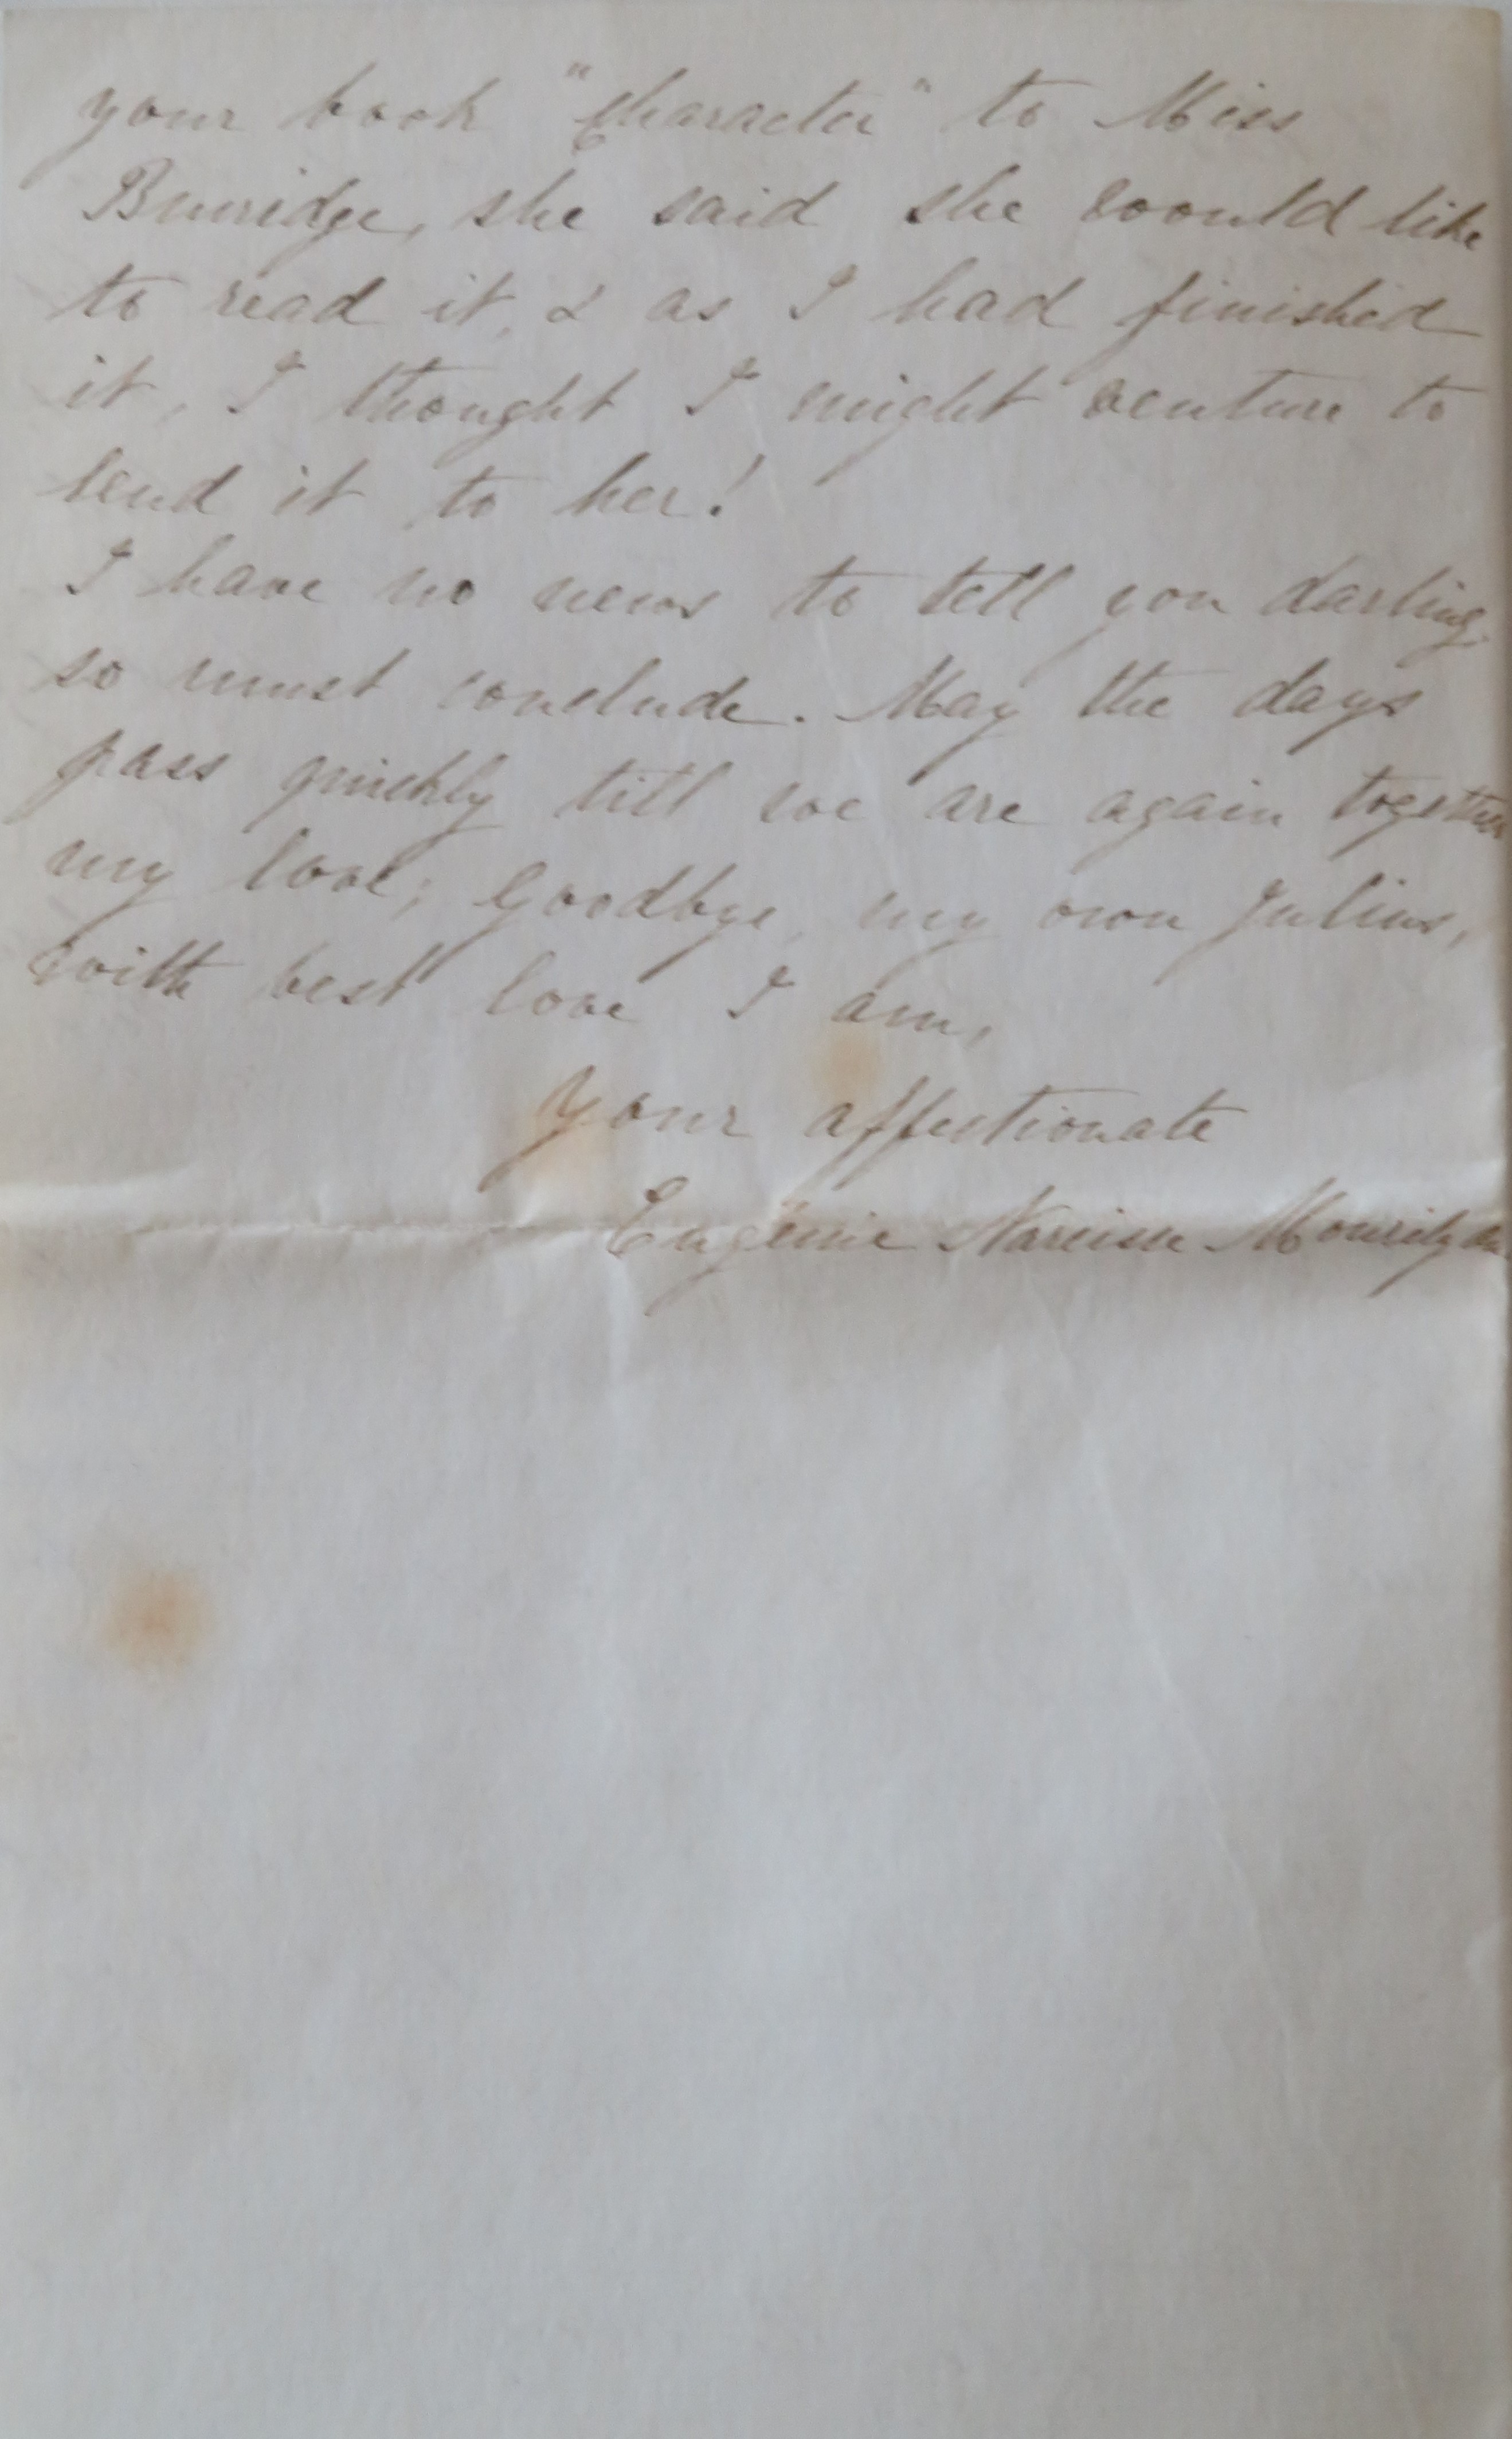 your book "Character" to Miss
Burridge, she said she would like
to read it, & as I had finished
it, I thought I might venture to
lend it to her!
I have no news to tell you darling
so must conclude. May the days
pass quickly till we are again together
my love; Goodbye, my own Julius,
with best love I am,
Your affectionate
Eugénie Narcisse